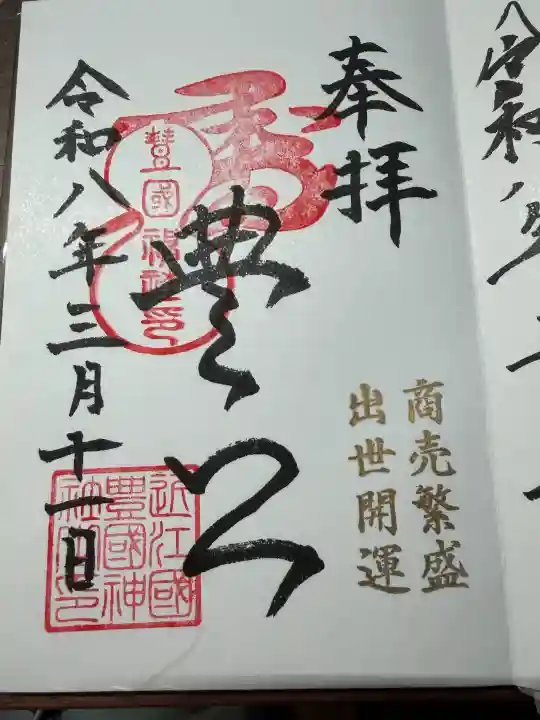 奉拝
商売繁盛
出世開運
豊公
豐國神社印
令和八年三月十一日
近江國
豊國神
社